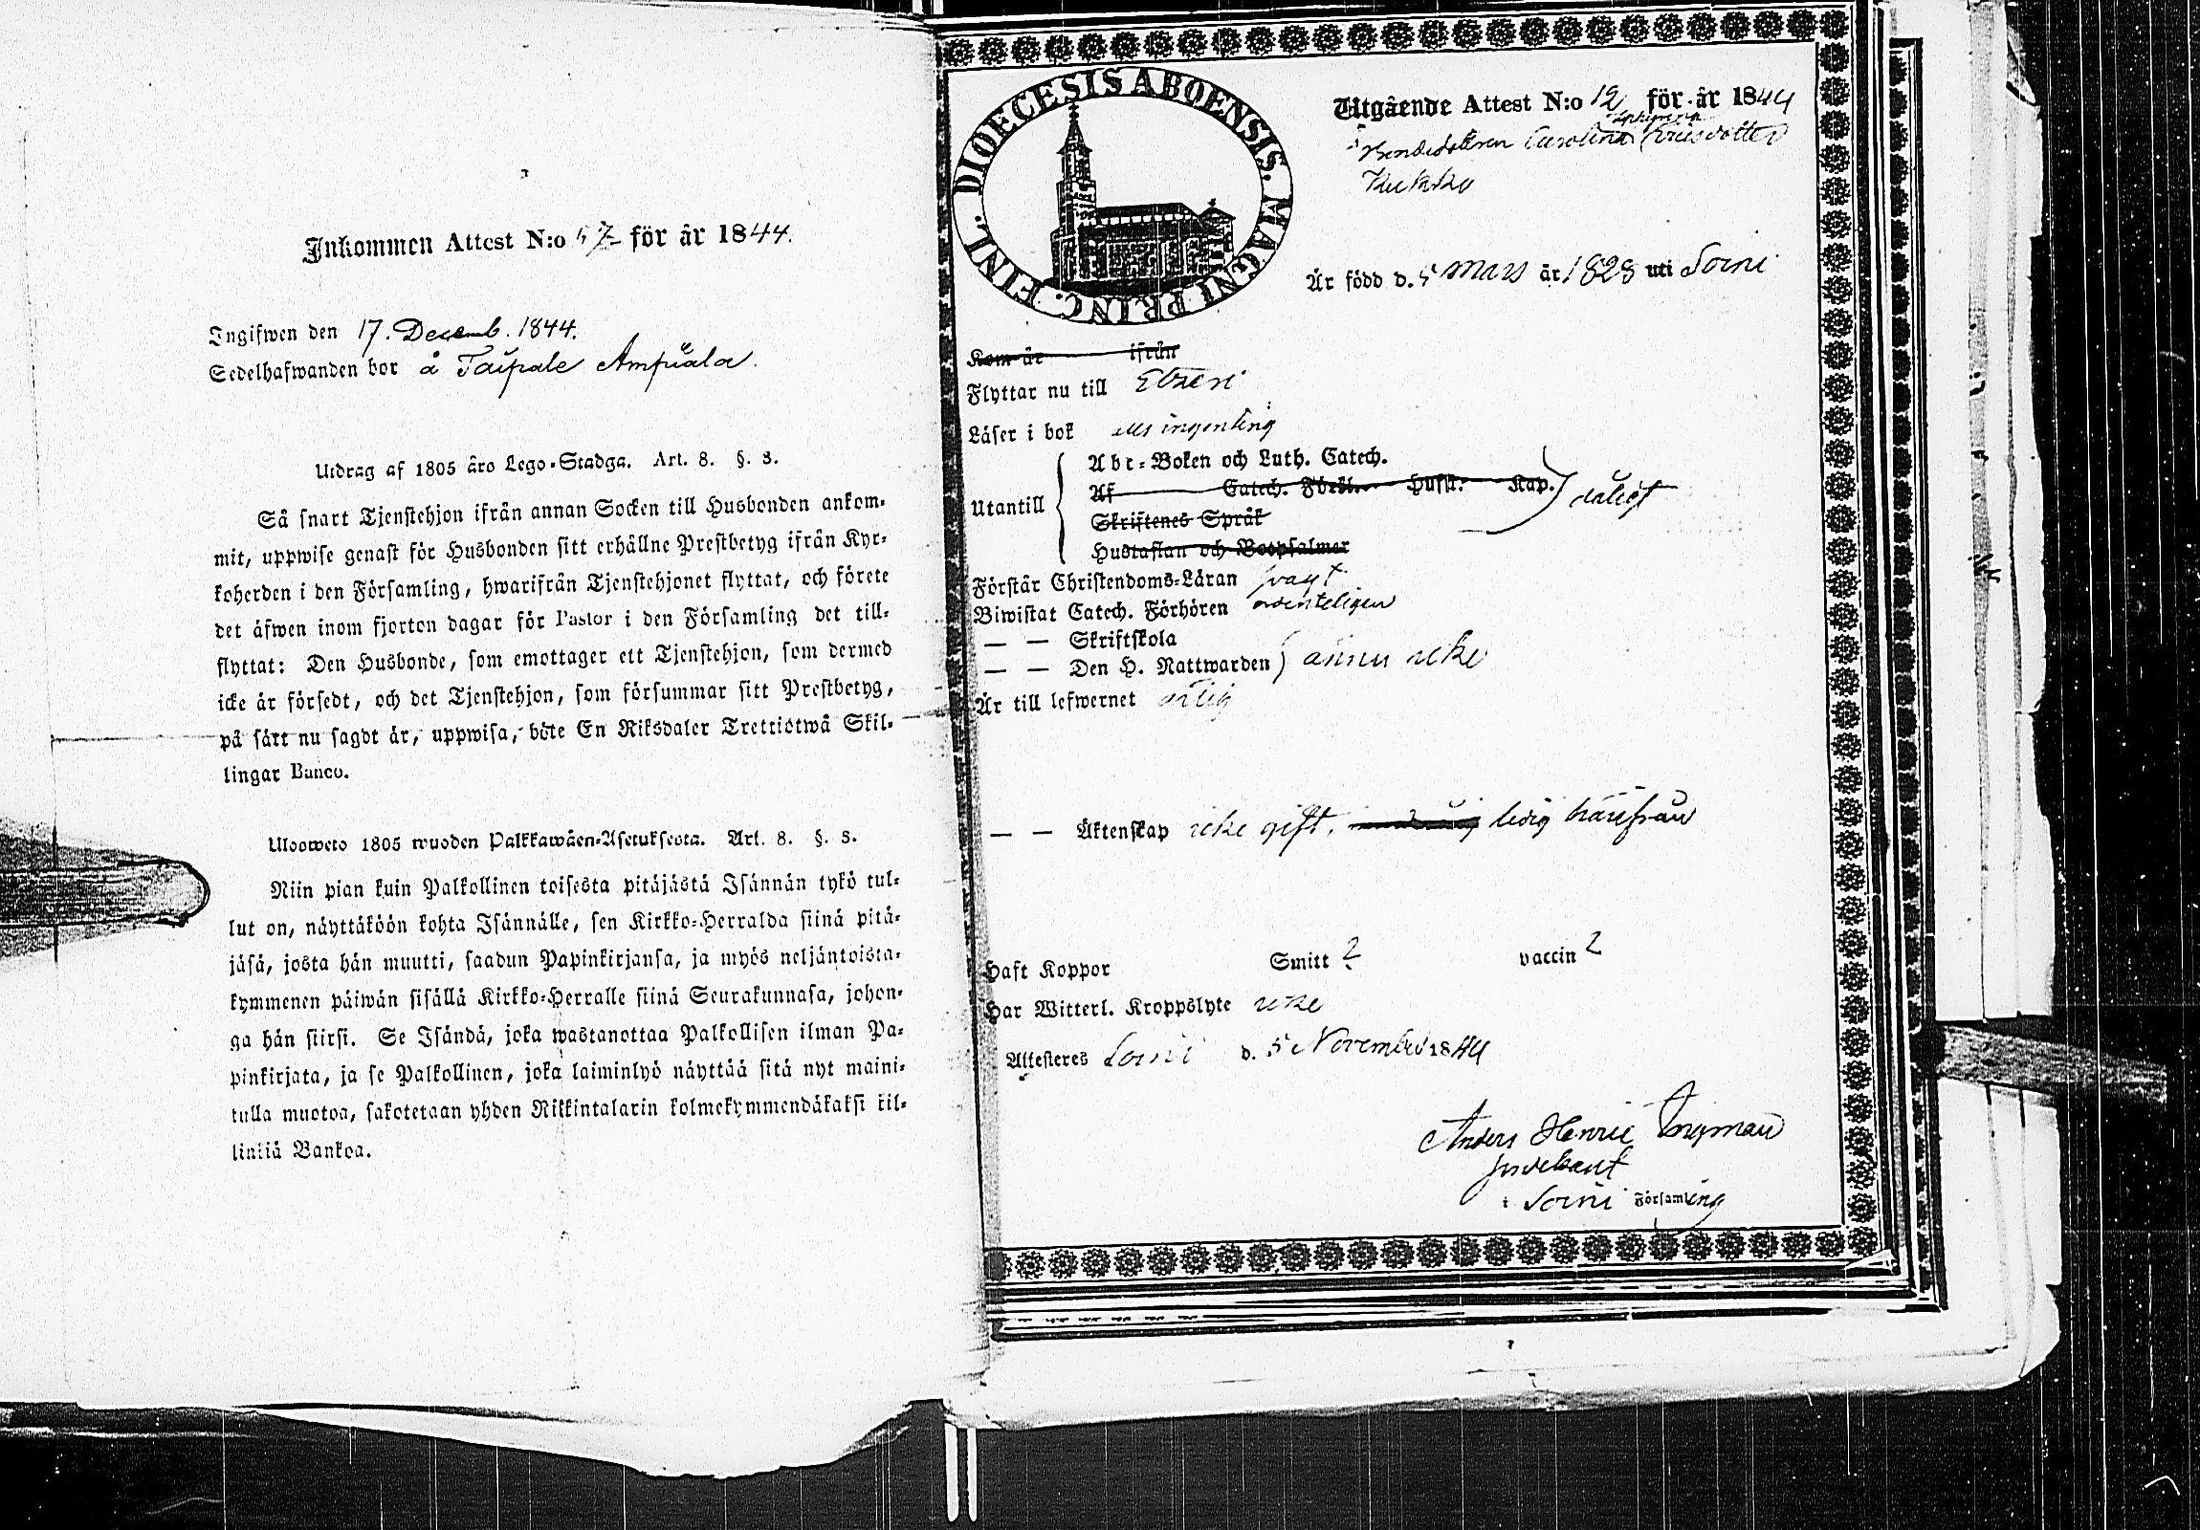 Inkommen Attest N:o 57 för år 1844.
Ingifwen den 17. Decemb. 1844.
Sedelhafwanden bor å Taipale Ampiala.
Utdrag af 1805 åro Lego-Stadga. Art. 8. §. 3.
Så snart Tjenstehjon ifrån annan Socken till Husbonden ankom-
mit, uppwise genast för Husbonden sitt erhållne Prestbetyg ifrån Kyr-
koherden i den Församling, hwarifrån Tjenstehjonet flyttat, och förete
det äfwen inom fjorton dagar för Pastor i den Församling det till-
flyttat: Den Husbonde, som emottager ett Tjenstehjon, som dermed
icke är försedt, och det Tjenstehjon, som försummar sitt Prestbetyg,
på sätt nu sagdt är, uppwisa, böte En Riksdaler Trettiotwå Skil-
lingar Banco.
Ulosweto 1805 wuoden Palkkawäen-Asetuksesta. Art. 8. §. 3.
Niin pian kuin Palkollinen toisesta pitäjästä Isännän tykö tul-
lut on, näyttäköön kohta Isännälle, sen Kirkko-Herralda siinä pitä-
jäsä, josta hän muutti, saadun Papinkirjansa, ja myös neljäntoista-
kymmenen päiwän sisällä Kirkko-Herralle siinä Seurakunnasa, johon-
ga hän siirsi. Se Isändä, joka wastanottaa Palkollisen ilman Pa-
pinkirjata, ja se Palkollinen, joka laiminlyö näyttää sitä nyt maini-
tulla muotoa, sakotetaan yhden Rikkintalarin kolmekymmendäkaksi kil-
linkiä Bankoa.
DIOECESIS ABOENSIS. MAGNI PRINC. FINL.
Utgående Attest N:o 12 för år 1844
Carolina
Kukko
Är född d. 5 Mars år 1828 uti Soini
Kom år ifrån
Flyttar nu till Etseri
Läser i bok alls ingenting
Utantill
Abc-Boken och Luth. Catech.
Af Catech. Förkl. Huspl. Kap.
Skriftenes Språk
Hustaflan och Botpsalmer
dåligt
Förstår Christendoms-Läran svagt
Biwistat Catech. Förhören ordenteligen
— — Skriftskola
— — Den H. Nattwarden } ännu icke
Är till lefwernet ärlig
— — Äktenskap icke gift, ledig härifrån
Haft Koppor Smitt 2 vaccin 2
Har Witterl. Kroppslyte icke
Attesteres Soini d. 5 November 1844
Anders Henric
i Soini Församling